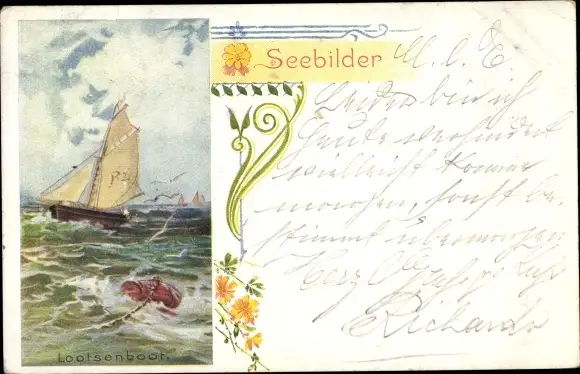 Seebilder
M. l. E.
Leider bin ich
heute verhindert
vielleicht komme
morgen, sonst be-
stimmt übermorgen
Herzl
Richard
P 2
Lootsenboot.